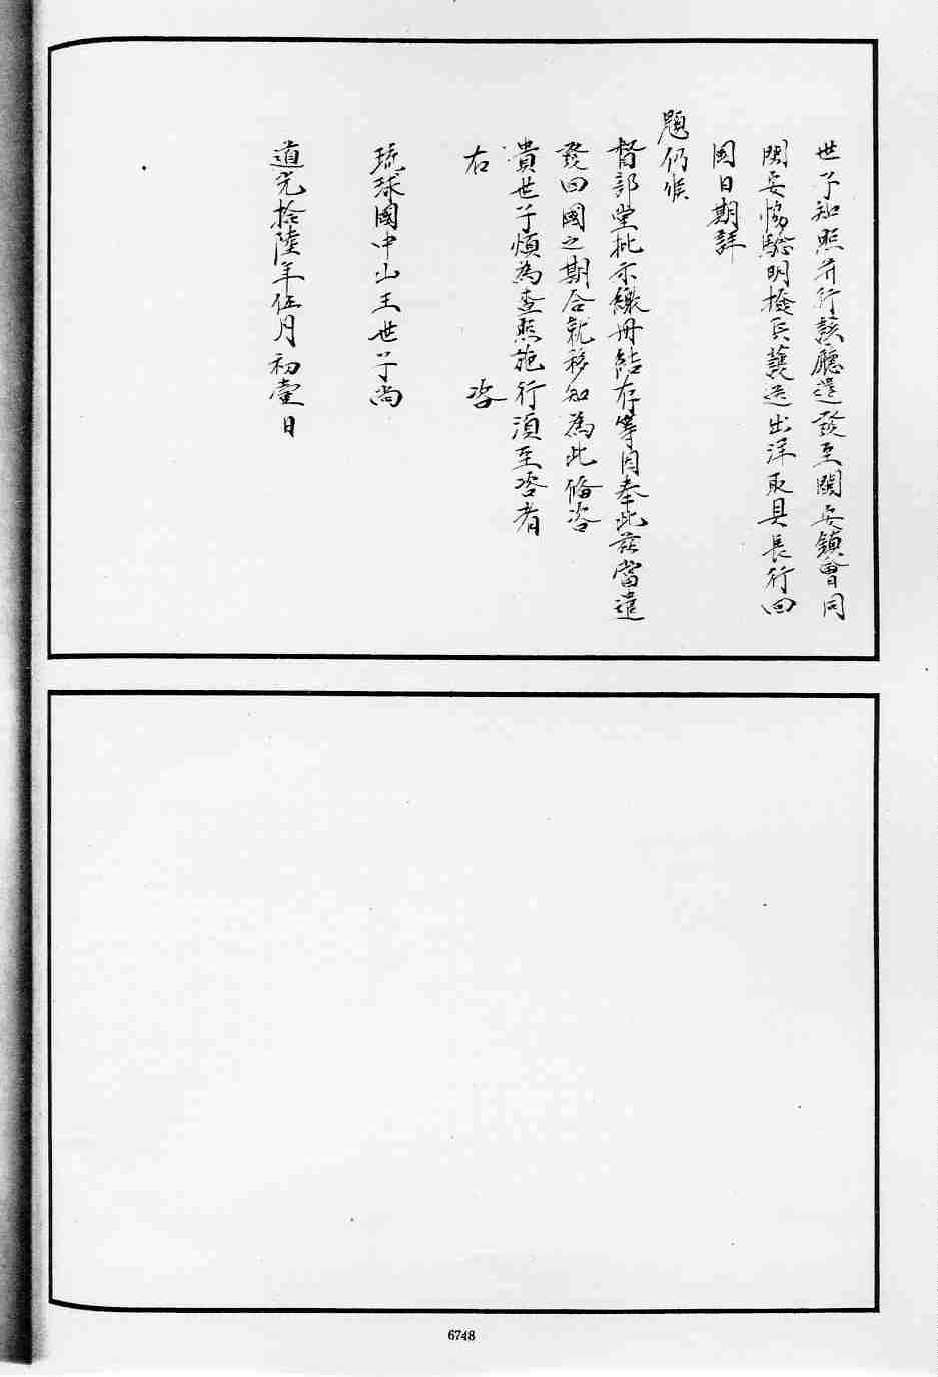 世子知照并行該廳遣發至關安鎮會同
閩安協驗明撥兵護送出洋取具長行回
國日期詳
題仍候
督部堂批示繳册結存等因奉此茲當遣
發回國之期合就移知為此備咨
貴世子煩為查照施行湏至咨者
右　咨
琉球國中山王世子尚
道光拾陸年伍月初壹日
6748